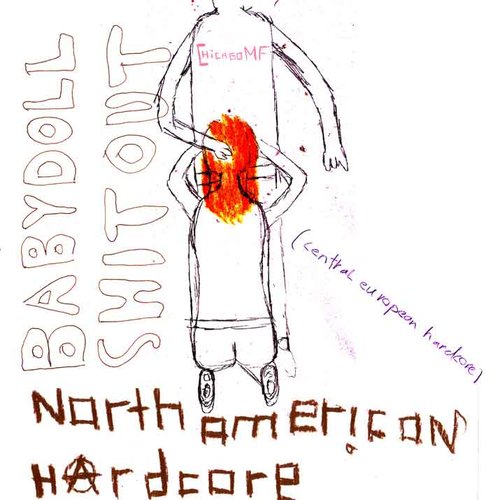 BABYDOLL
SHIT OUT
CHICAGOMF
(central european hardcore)
North american
hardcore